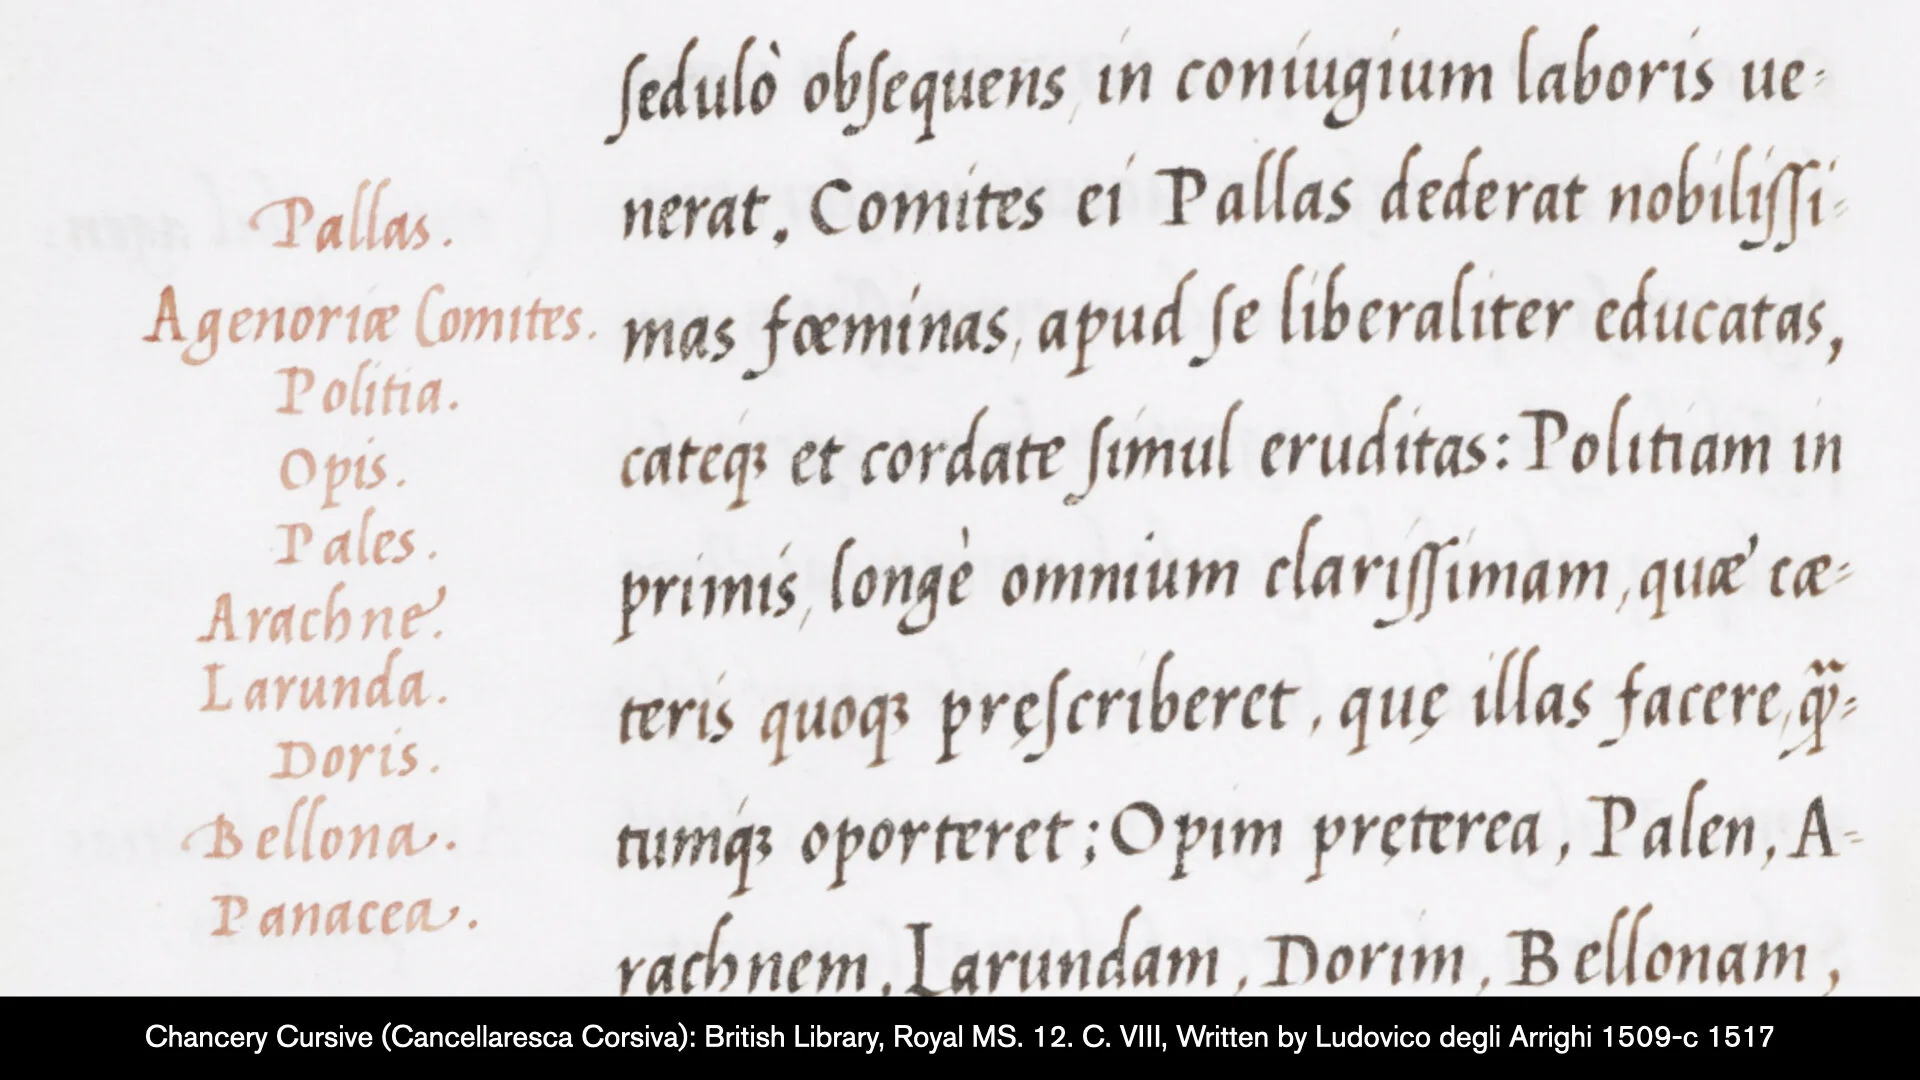 Pallas.
Agenoriæ Comites.
Politia.
Opis.
Pales.
Arachne.
Larunda.
Doris.
Bellona.
Panacea.
ſedulò obſequens, in coniugium laboris ue-
nerat. Comites ei Pallas dederat nobiliſſi-
mas fœminas, apud ſe liberaliter educatas,
cateqꝫ et cordate ſimul eruditas: Politiam in
primis, longè omnium clariſſimam, quæ cæ-
teris quoqꝫ pręſcriberet, quę illas facere, q̃-
tumqꝫ oporteret; Opim pręterea, Palen, A-
rachnem, Larundam, Dorim, Bellonam,
Chancery Cursive (Cancellaresca Corsiva): British Library, Royal MS. 12. C. VIII, Written by Ludovico degli Arrighi 1509-c 1517